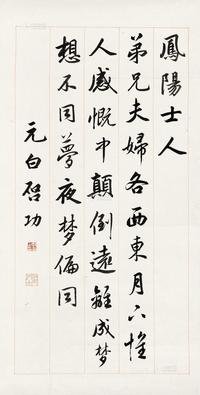 鳳陽士人
弟兄夫婦各西東月下惟
人感慨中顛倒遠離成夢
想不同夢夜梦偏同
元白启功